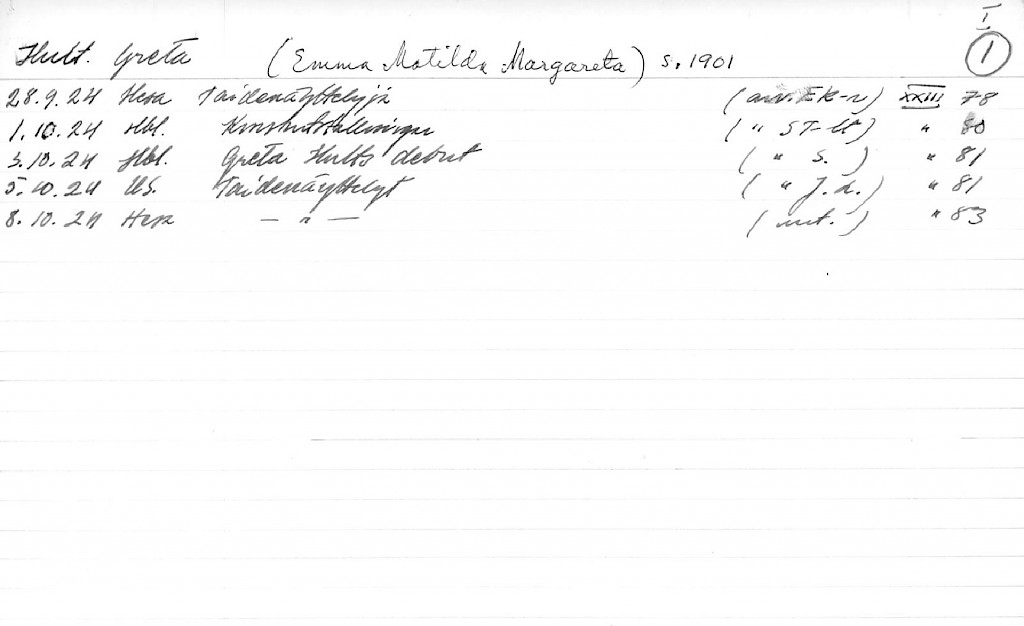 I
Hult. Greta (Emma Matilda Margareta) s. 1901 1
28.9.24 Hesa Taidenäyttelyjä (arv. EK-r) XXIII 78
1.10.24 Hbl. Konstutställningar (" ST-lt) " 80
3.10.24 Hbl. Greta Hults debut (" S.) " 81
5.10.24 US. Taidenäyttelyt (" J.L.) " 81
8.10.24 Hesa — " — (uut.) " 83